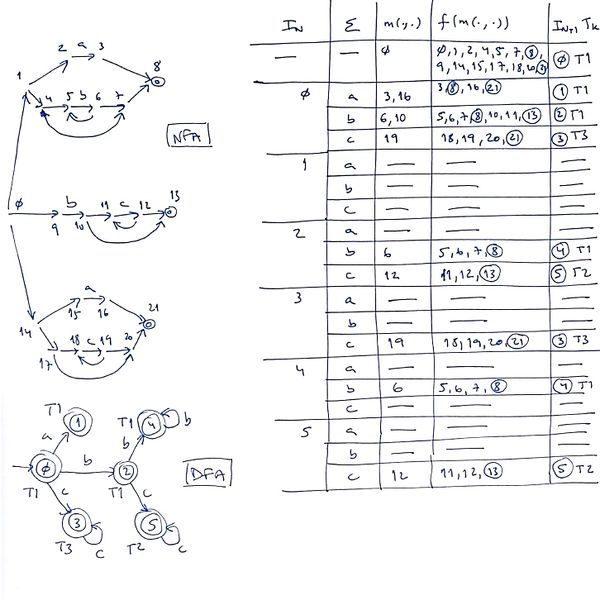 2 a 3
1
8
4 5 b 6 7
NFA
Ø
b 11 c 12 13
9 10
a
15 16
21
14
18 c 19 20
17
T1
1
T1
4
b
a
b
Ø
b
2
DFA
T1
c
T1
c
3
5
T3
c
T2
c
IN Σ m(·,·) f(m(·,·)) IN+1 Tk
— — Ø Ø,1,2,4,5,7,8,
9,14,15,17,18,20,21 Ø T1
Ø a 3,16 3,8,16,21 1 T1
b 6,10 5,6,7,8,10,11,13 2 T1
c 19 18,19,20,21 3 T3
1 a — — —
b — — —
c — — —
2 a — — —
b 6 5,6,7,8 4 T1
c 12 11,12,13 5 T2
3 a — — —
b — — —
c 19 18,19,20,21 3 T3
4 a — — —
b 6 5,6,7,8 4 T1
c — — —
5 a — — —
b — — —
c 12 11,12,13 5 T2